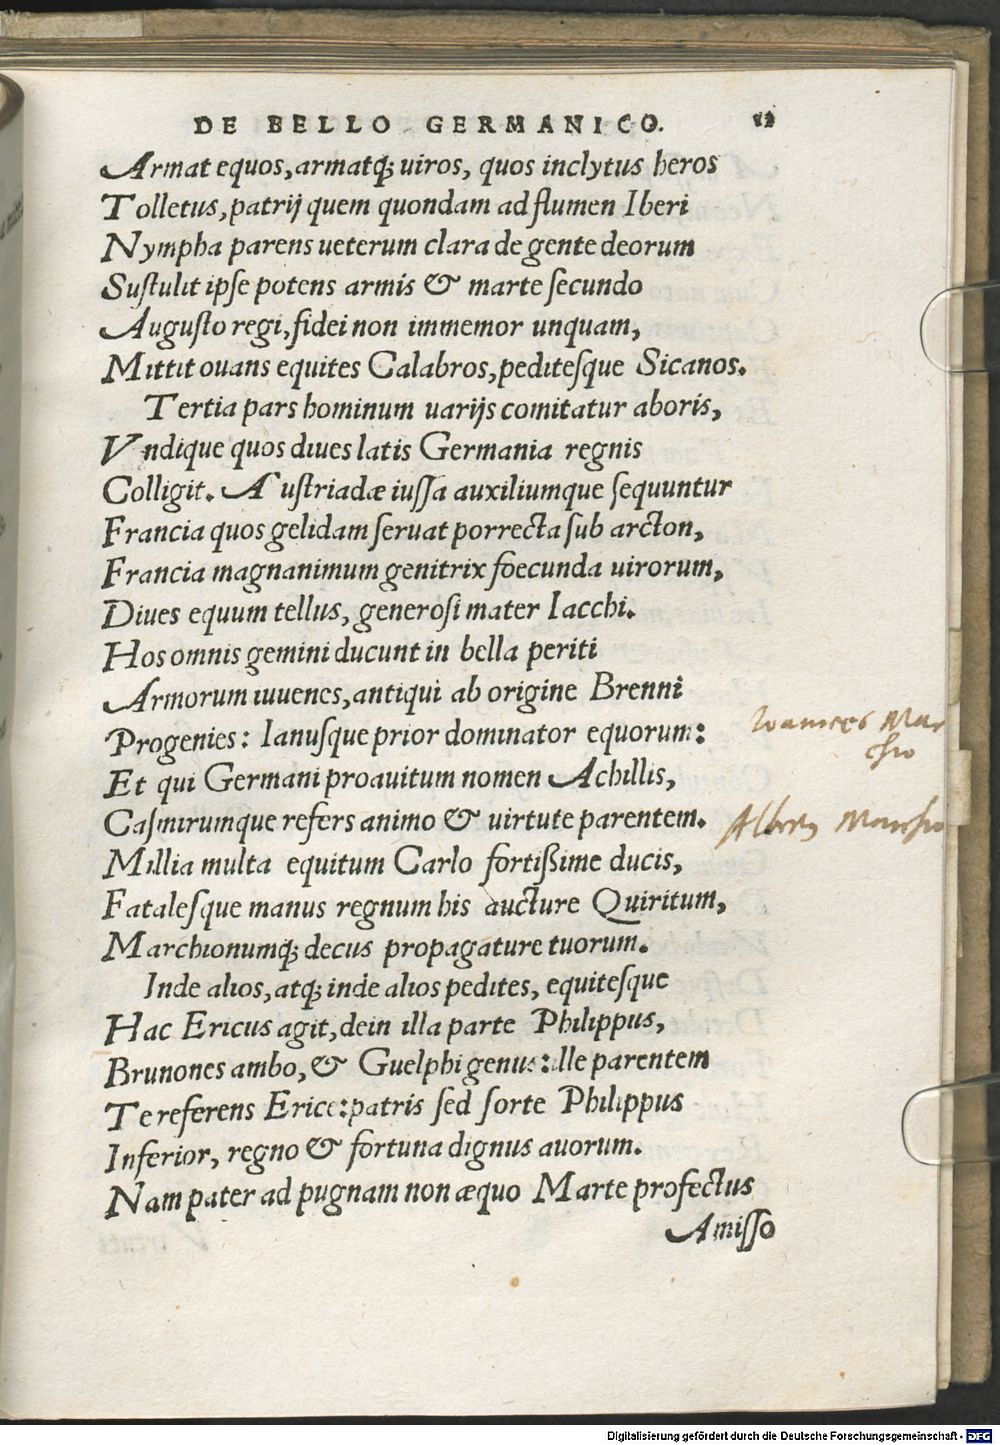 DE BELLO GERMANICO. 12
Armat equos, armatq; uiros, quos inclytus heros
Tolletus, patrij quem quondam ad flumen Iberi
Nympha parens ueterum clara de gente deorum
Sustulit ipse potens armis & marte secundo
Augusto regi, fidei non immemor unquam,
Mittit ouans equites Calabros, peditesque Sicanos.
Tertia pars hominum uarijs comitatur aboris,
Vndique quos diues latis Germania regnis
Colligit. Austriadæ iussa auxiliumque sequuntur
Francia quos gelidam seruat porrecta sub arcton,
Francia magnanimum genitrix foecunda uirorum,
Diues equum tellus, generosi mater Iacchi.
Hos omnis gemini ducunt in bella periti
Armorum iuuenes, antiqui ab origine Brenni
Progenies: Ianusque prior dominator equorum:
Et qui Germani proauitum nomen Achillis,
Casmirumque refers animo & uirtute parentem.
Millia multa equitum Carlo fortißime ducis,
Fatalesque manus regnum his aucture Quiritum,
Marchionumq; decus propagature tuorum.
Inde alios, atq; inde alios pedites, equitesque
Hac Ericus agit, dein illa parte Philippus,
Brunones ambo, & Guelphi genus: ille parentem
Te referens Erice: patris sed sorte Philippus
Inferior, regno & fortuna dignus auorum.
Nam pater ad pugnam non æquo Marte profectus
Amisso
Ioannes Mar
chio
Albertus Marchio
Digitalisierung gefördert durch die Deutsche Forschungsgemeinschaft - DFG